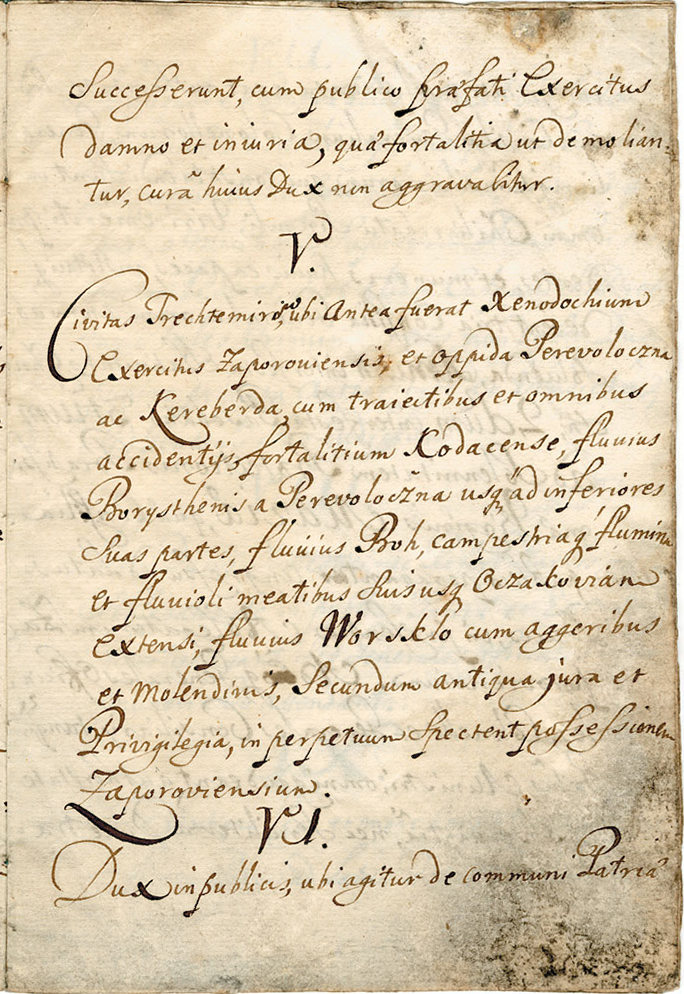 Successerunt, cum publico præfati Exercitus
damno et iniuria, quæ fortalitia ut demolian-
tur, curâ huius Dux non aggravabitur.
V.
Civitas Trechtemirów, ubi Antea fuerat Xenodochium
Exercitus Zaporoviensis, et oppida Perevoloczna
ac Kereberda cum traiectibus et omnibus
accidentijs, fortalitium Kodacense, fluvius
Borysthenis a Perevoloczna usq ad inferiores
suas partes, fluvius Boh, campestriaq flumina
et fluvioli meatibus suis usq Oczakoviam
extensi, fluvius Worsklo cum aggeribus
et Molendinis, secundum antiqua jura et
Privigilegia, in perpetuum spectent possessionem
Zaporoviensium.
VI.
Dux in publicis, ubi agitur de communi Patriæ